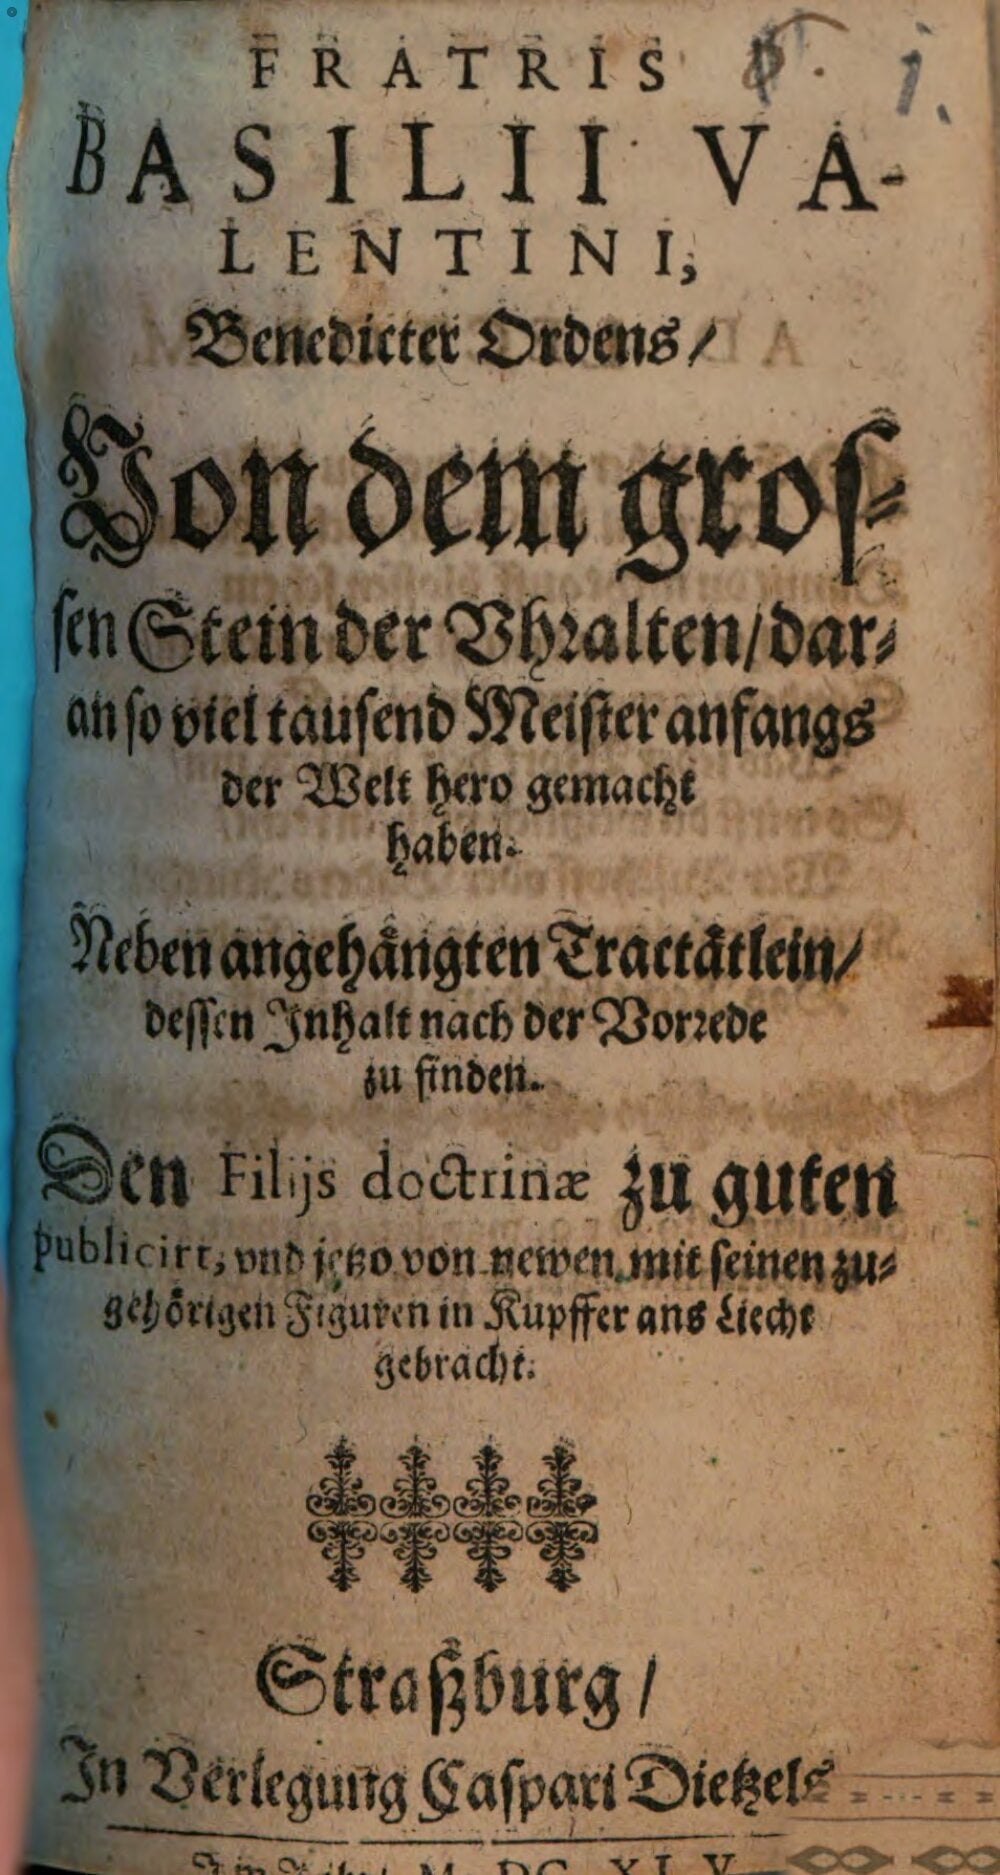 FRATRIS
BASILII VA-
LENTINI,
Benedicter Ordens/
Von dem gros-
sen Stein der Vhralten/dar-
an so viel tausend Meister anfangs
der Welt hero gemacht
haben.
Neben angehängten Tractätlein/
dessen Inhalt nach der Vorrede
zu finden.
Den Filijs doctrinæ zu guten
publicirt, vnd jetzo von newen mit seinen zu-
gehörigen Figuren in Kupffer ans Liecht
gebracht.
Straßburg/
In Verlegung Caspari Dietzels
M. DC. XLV.